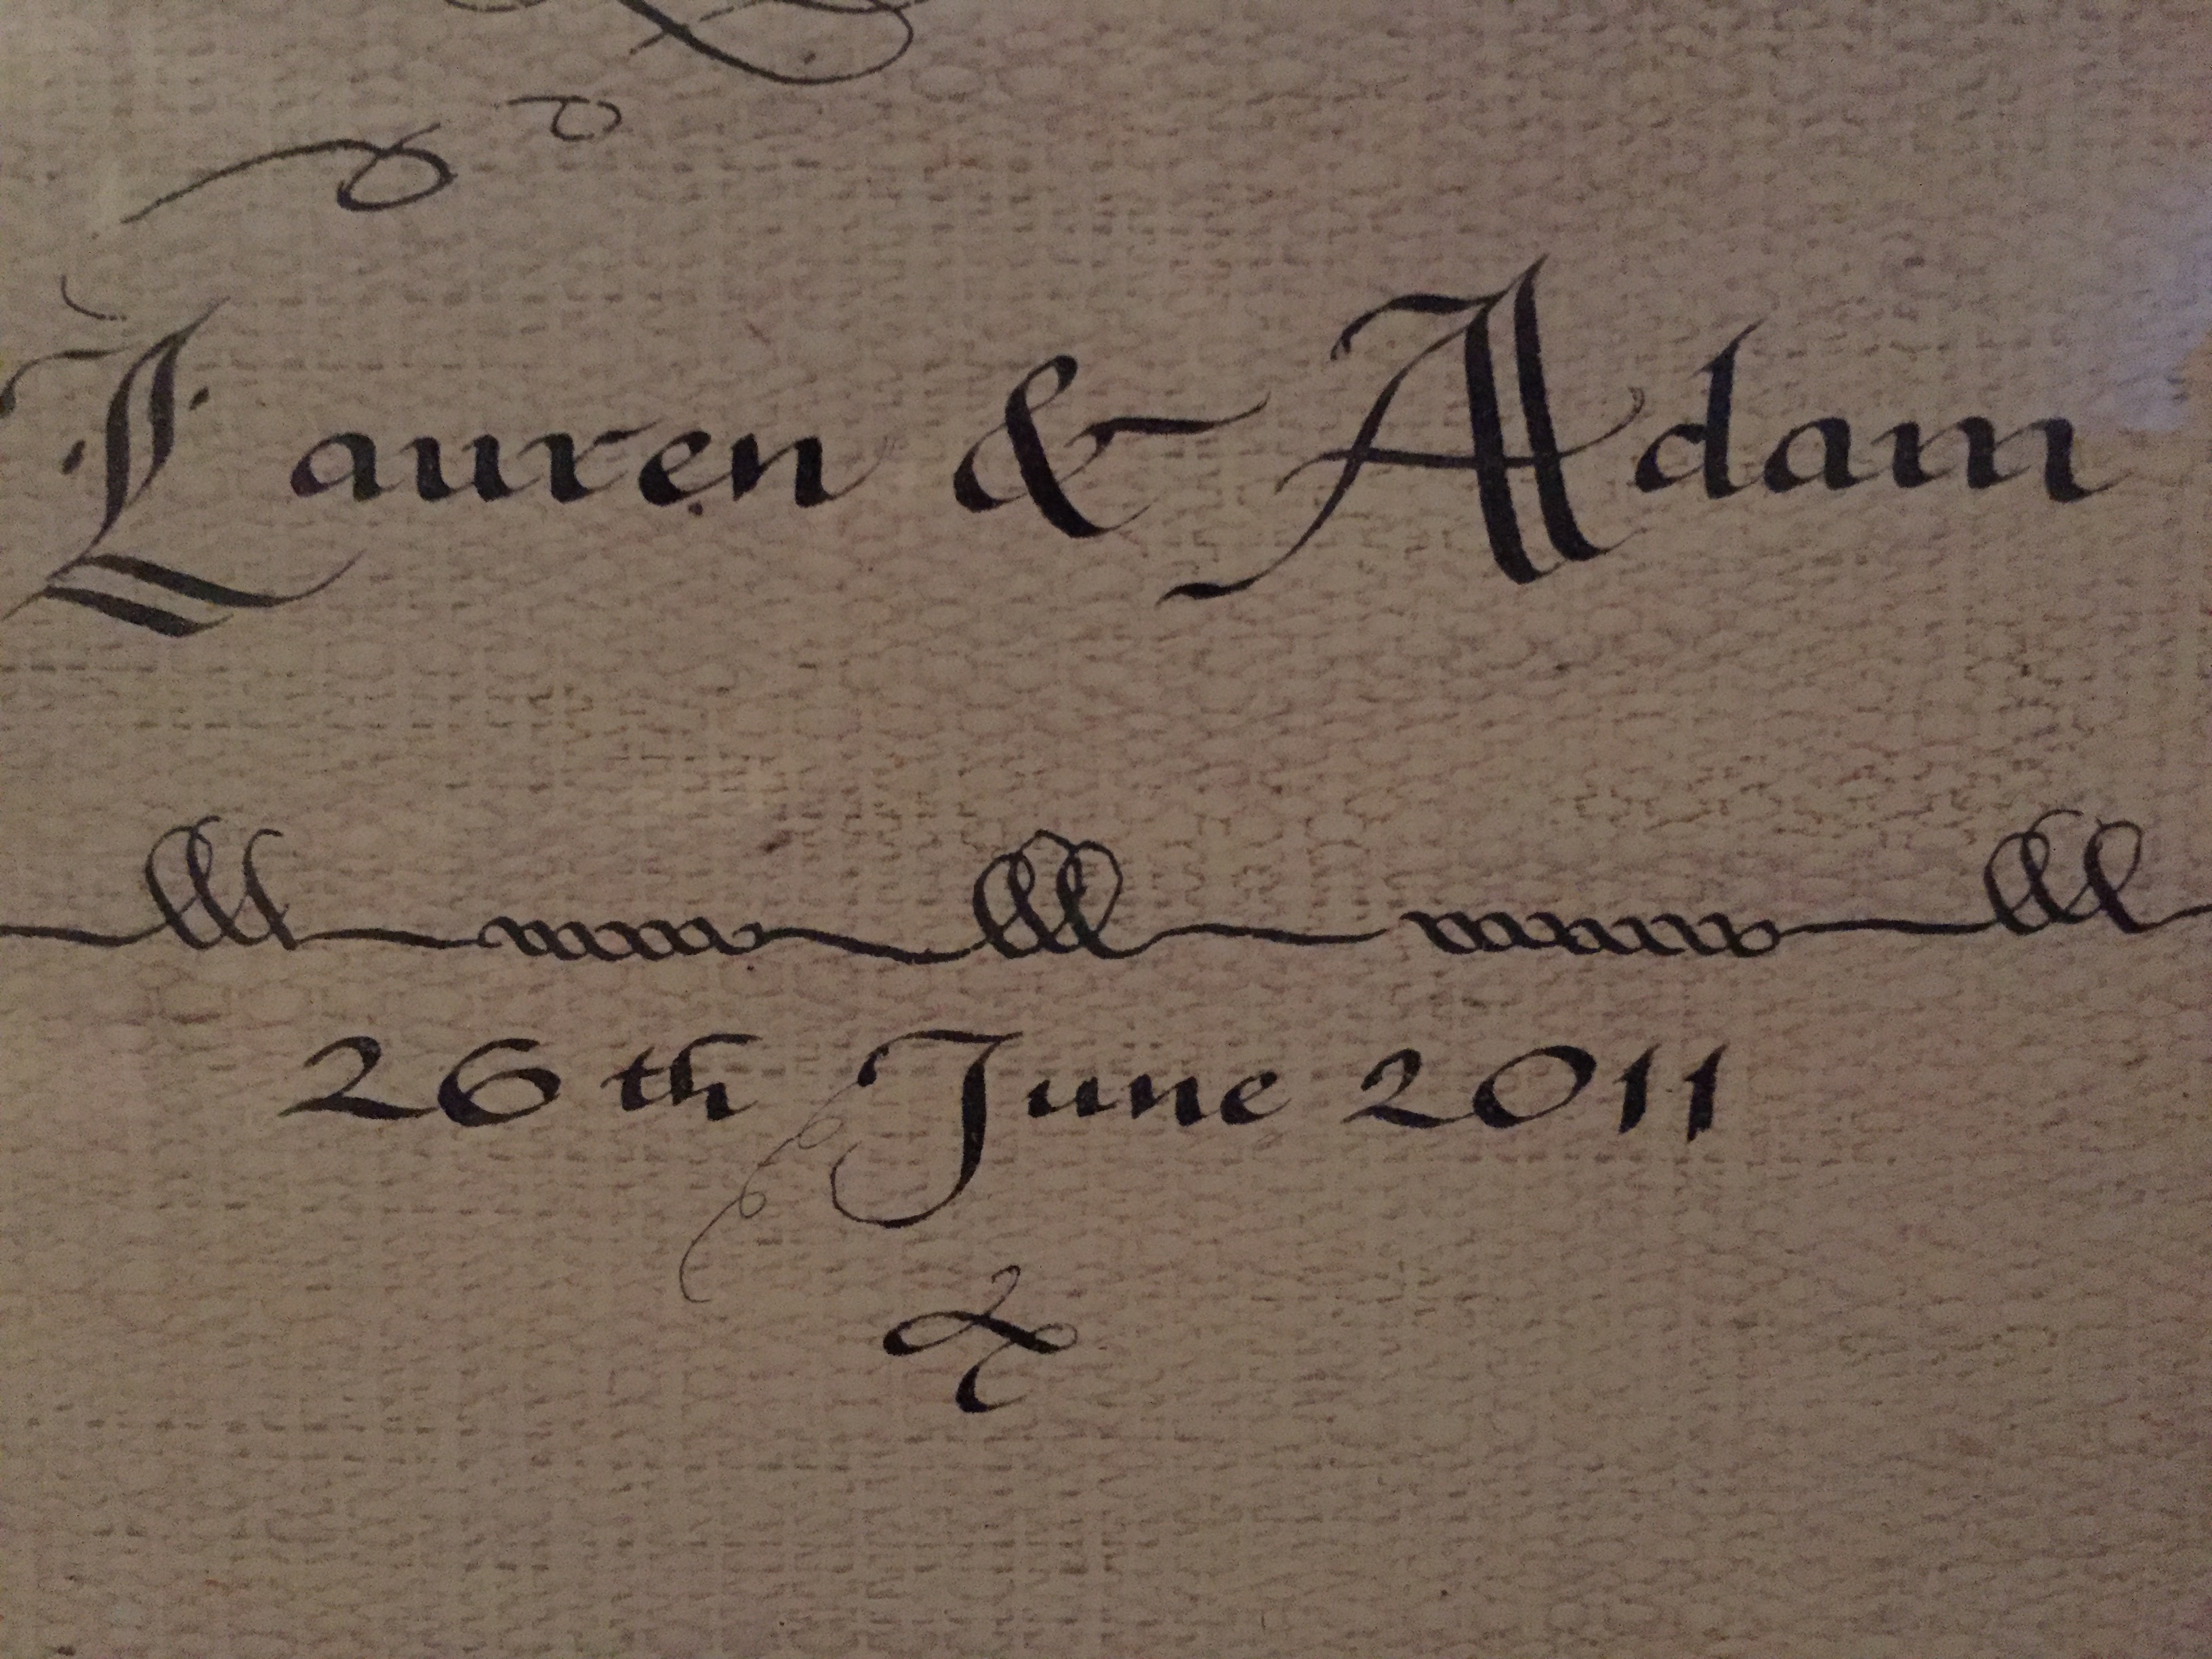 Lauren & Adam
26th June 2011